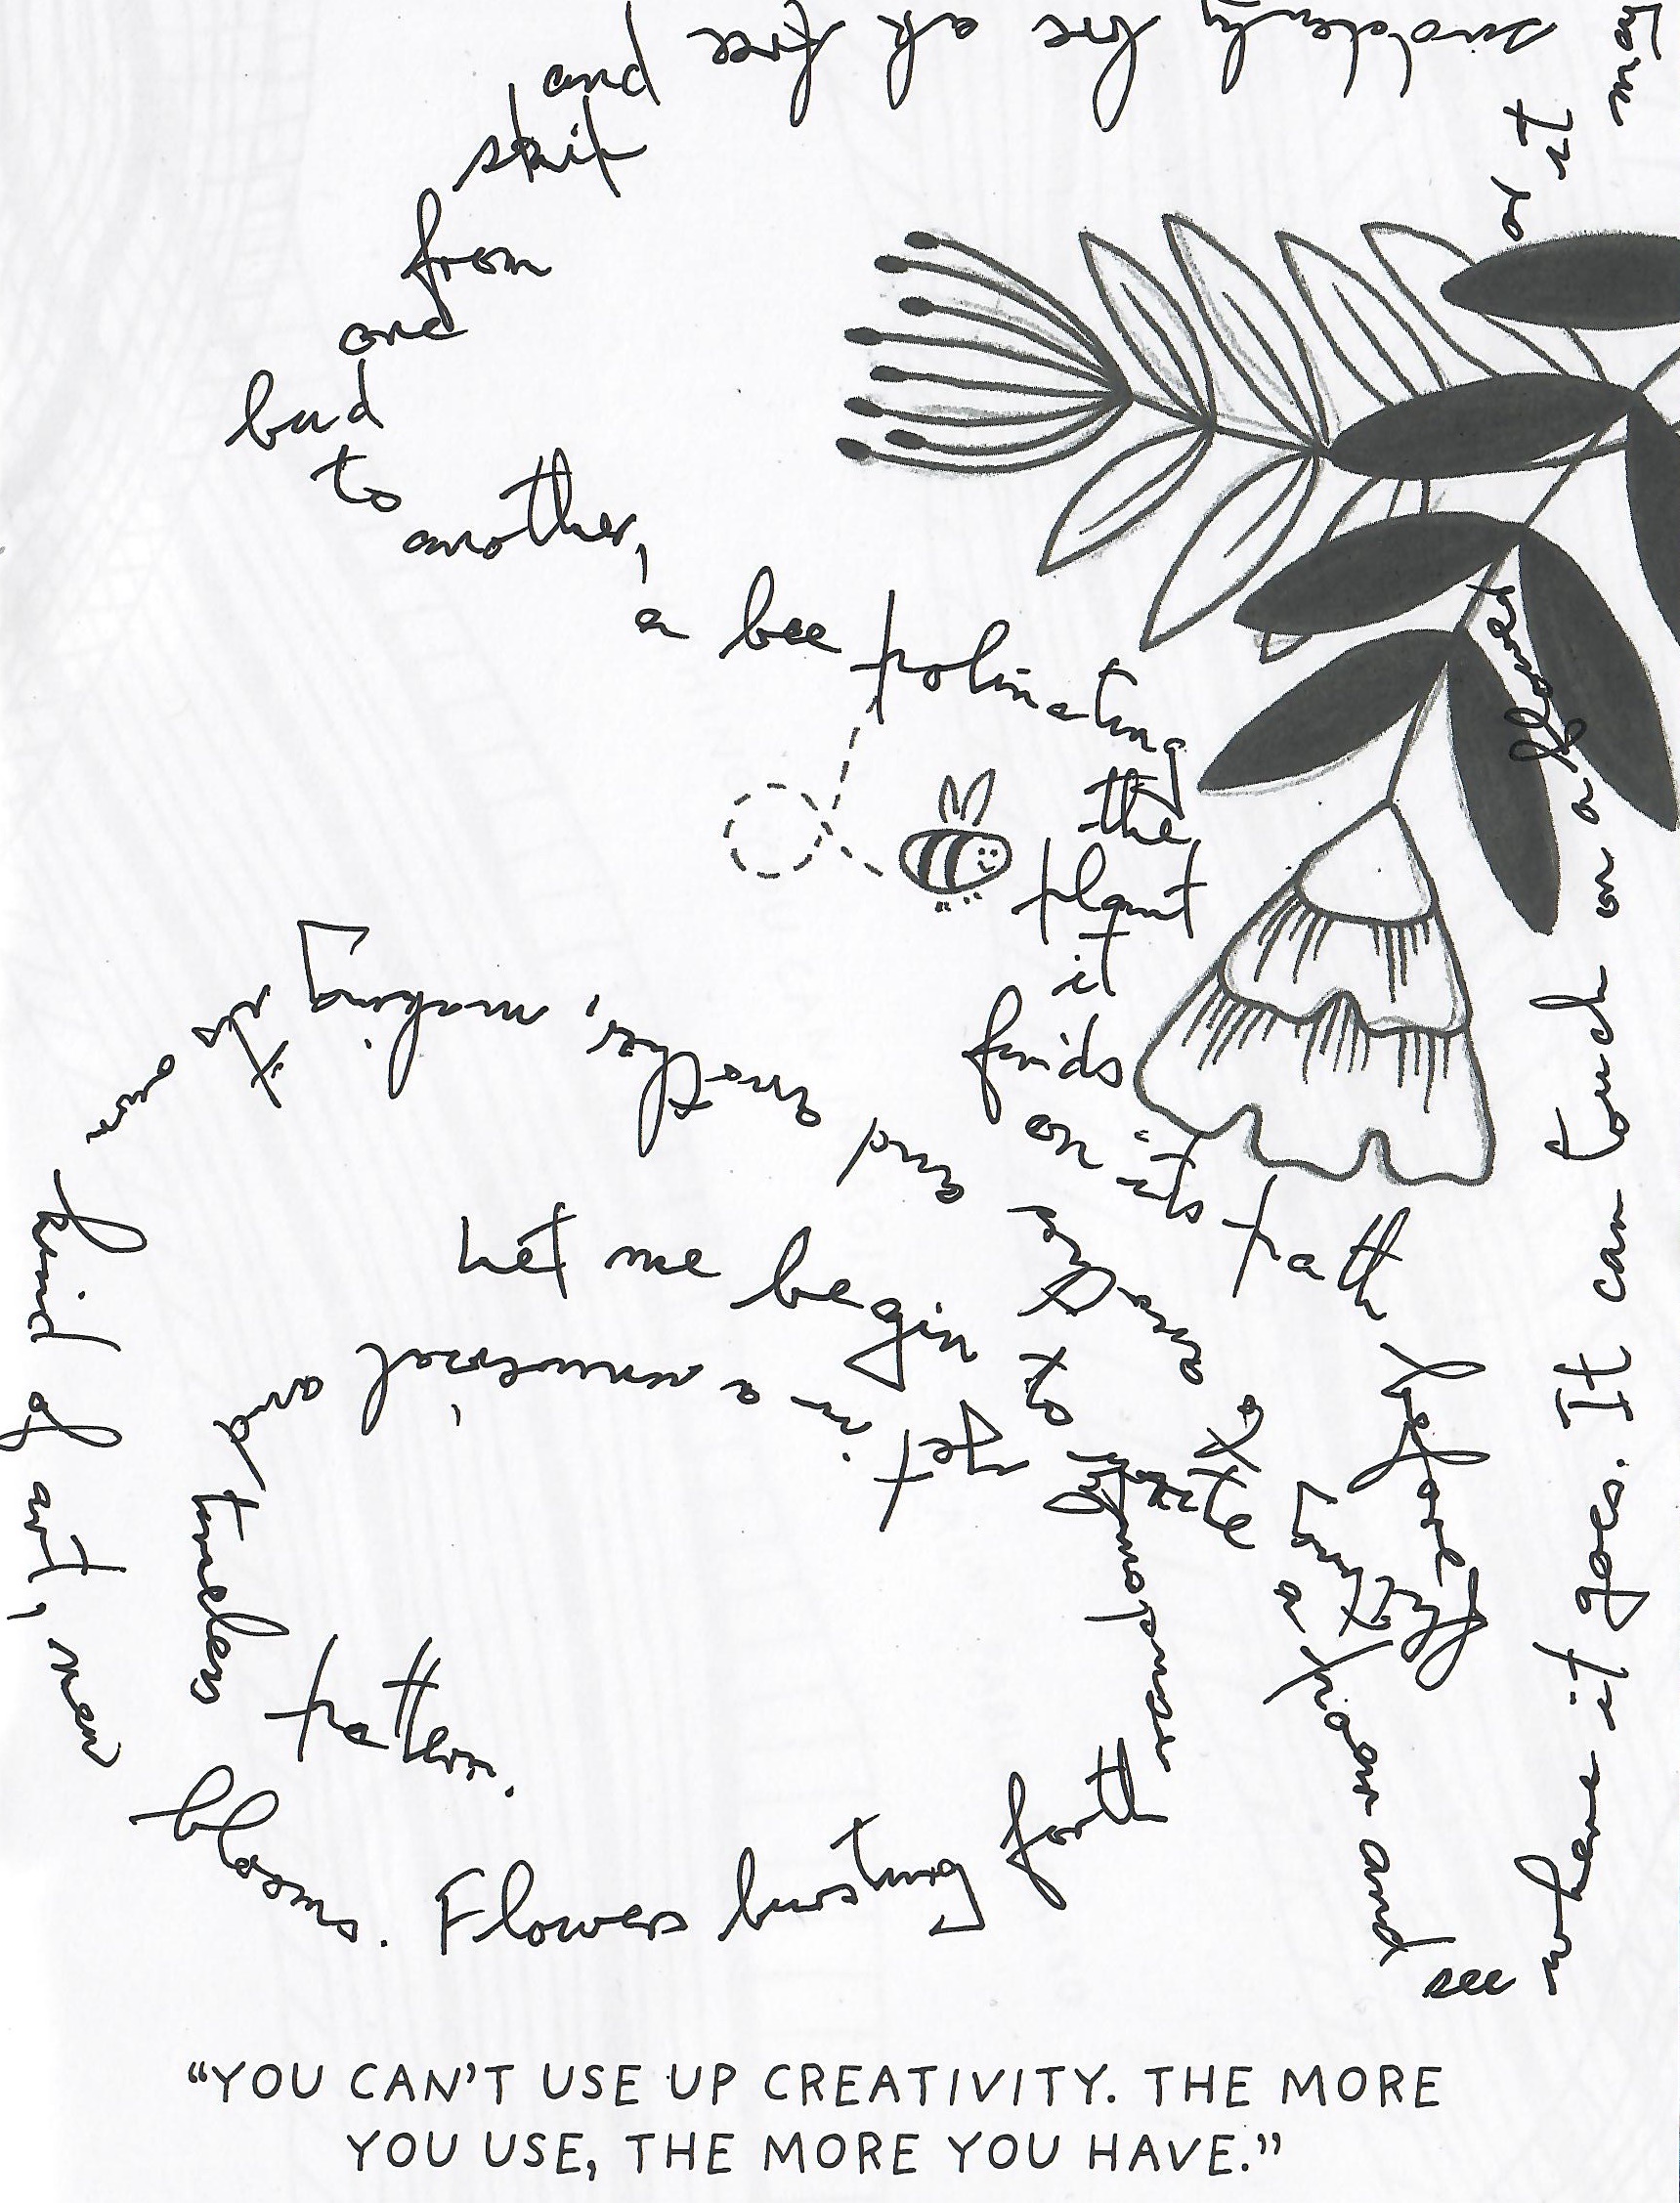 Let me begin to write a poem and see
where it goes. It can touch on a flower
or it may
suddenly be free
and
skit
from
one
bud
to
another,
a bee polinating
the
plant
it
finds
on its path before
to another and another, making
its own
kind of art, new
blooms. Flowers bursting forth
randomly
yet in a universal
and
timeless
pattern.
"YOU CAN'T USE UP CREATIVITY. THE MORE
YOU USE, THE MORE YOU HAVE."